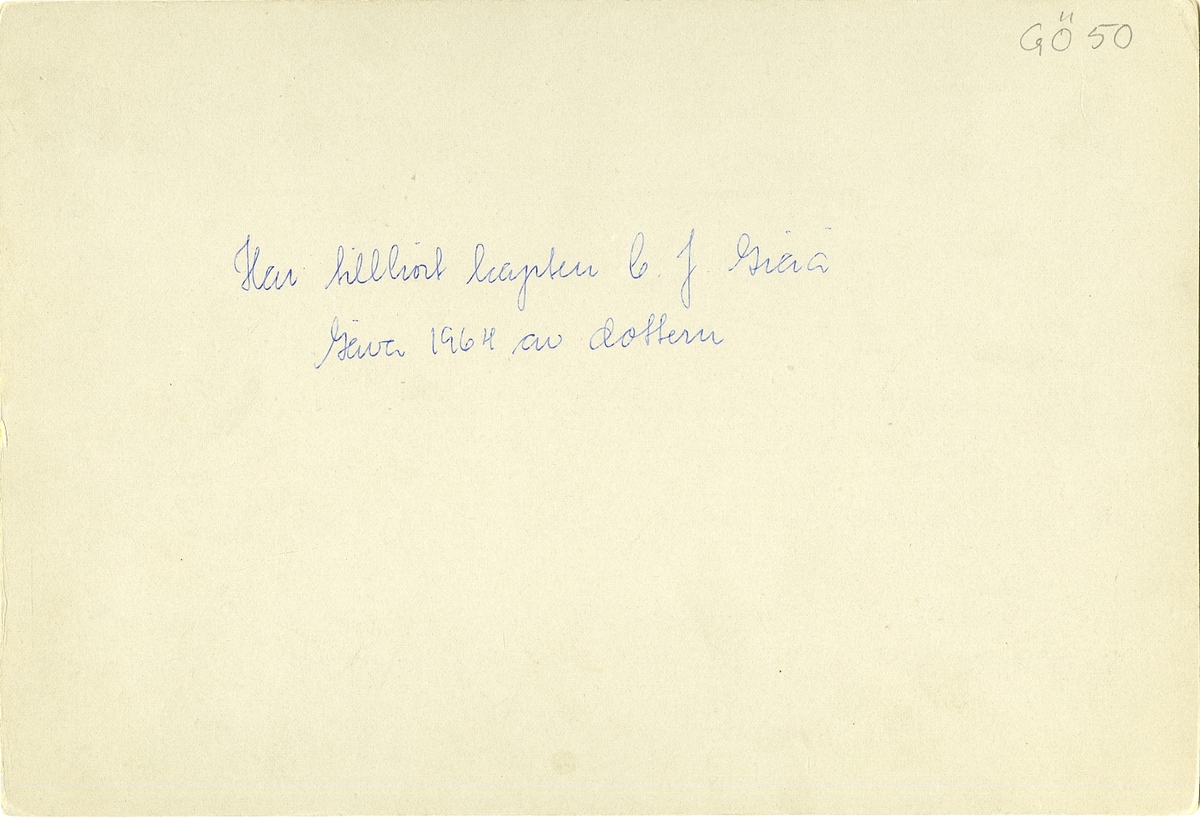 GÖ 50
Har tillhört kapten C. J.
Gåva 1964 av dottern